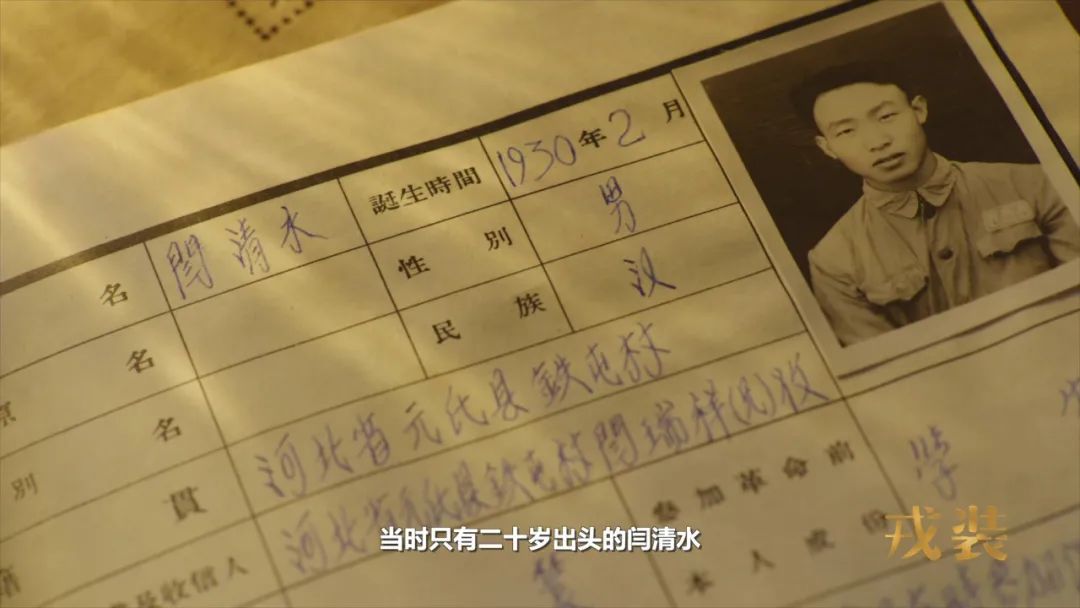 名 閆清水 誕生時間 1930年2月
名 性別 男
別名 民族 汉
籍貫 河北省元氏县鉄屯村
收信人 河北省元氏县鉄屯村閆瑞祥(兄)收
參加革命前
本人成份 学
当时只有二十岁出头的闫清水
戎装